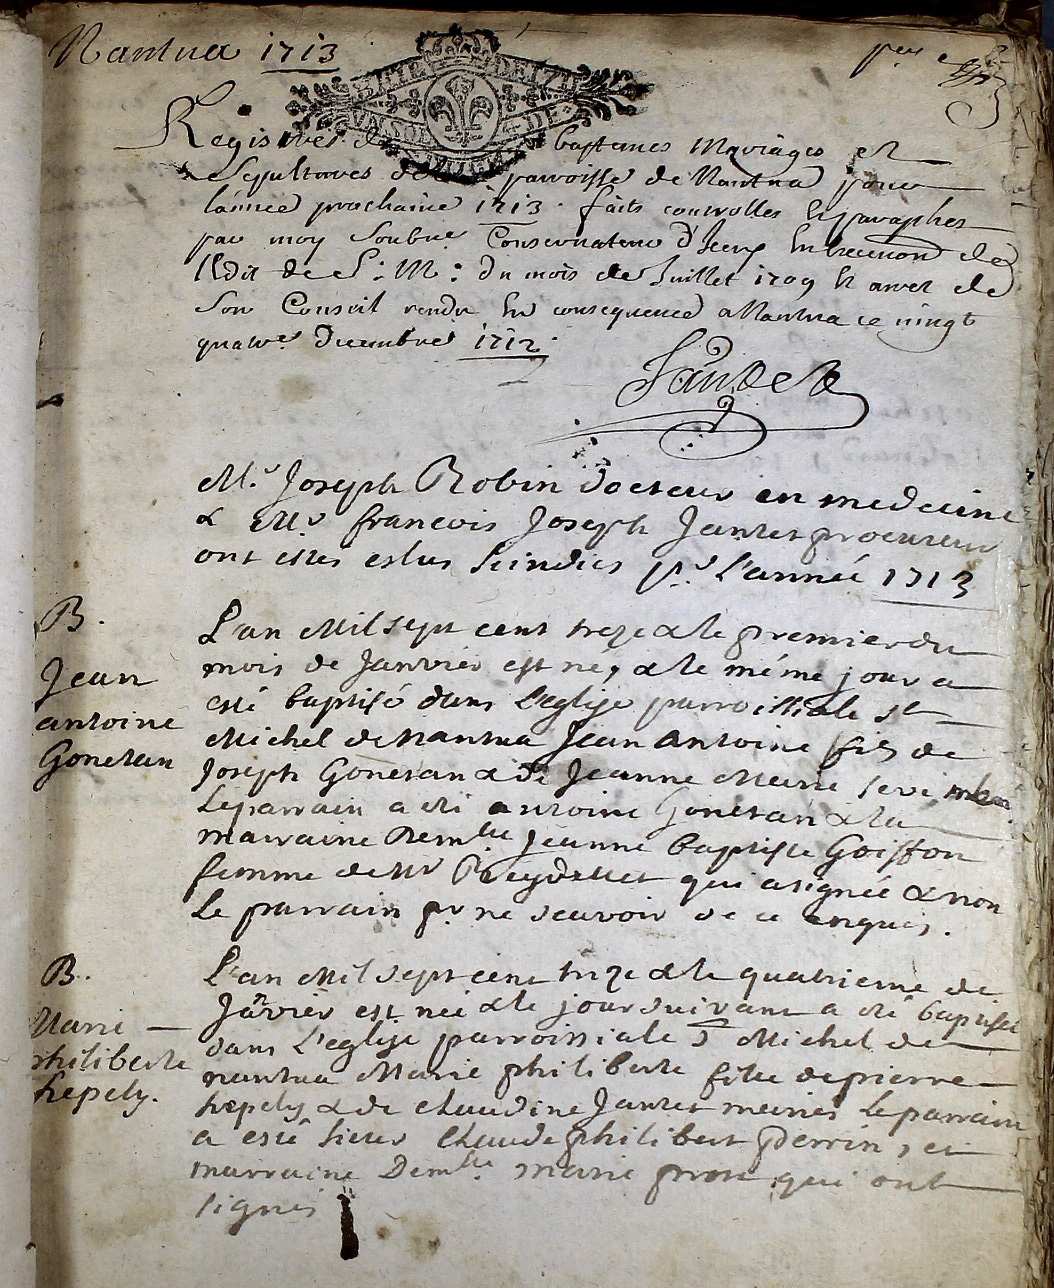 Nantua 1713
Registres de baptemes Mariages et
Sepultures de parroisse de Nantua pour
lannee prochaine 1713. faits controlles Et paraphes
par moy Soubne Conservateur d'Iceux En execution de
l'Edit de S. M. du mois de Juillet 1709 Et arret de
Son Conseil rendu En consequence a Nantua ce vingt
quatre Decembre 1712.
Mr. Joseph Robin docteur en medecine
& Mr francois Joseph Jantet procureur
ont estés eslus Scindics pr. L'année 1713
B.
Jean
antoine
Gonetan
L'an Mil sept cent treze & le premier du
mois de Janvier est né, & le méme jour a
esté baptisé dans L'eglise parroissiale St
Michel de Nantua Jean Antoine fils de
Joseph Gonetan & de Jeanne Marie
Le parrain a été antoine Gonetan & la
marraine Demlle Jeanne baptiste Goiffon
femme de Mr Reydellet qui a signée & non
Le parrain pr ne scavoir de ce enquis.
B.
Marie
philiberte
hepely.
L'an Mil sept cent treze & le quatrieme de
Janvier est née & le jour suivant a été baptisée
dans L'eglise parroissiale S Michel de
nantua Marie philiberte fille de pierre
hepely & de Claudine Jantet mariés Le parrain
a esté Sieur Claude philibert perrin, et
marraine Demlle. marie pron qui ont
signés